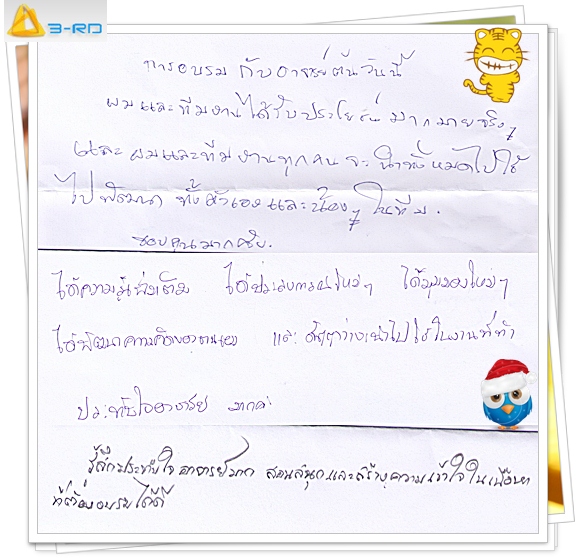 3-RD
การอบรม กับอาจารย์ต้นวันนี้
ผมและทีมงานได้รับประโยชน์ มากมายจริงๆ
และ ผมและทีมงานทุกคน จะ นำทั้งหมดไปใช้
ไปพัฒนา ทั้งตัวเองและน้องๆ ในทีม.
ขอบคุณมากครับ.
ได้ความรู้เพิ่มเติม ได้ประสบการณ์ใหม่ๆ ได้มุมมองใหม่ๆ
ได้พัฒนาความคิดของตนเอง และ นำไปใช้ในงานที่ทำ
ประทับใจอาจารย์ มากค่ะ
รู้สึกประทับใจ อาจารย์มาก สอนสนุกและสร้างความเข้าใจในเนื้อหา
ที่ต้องอบรมได้ดี